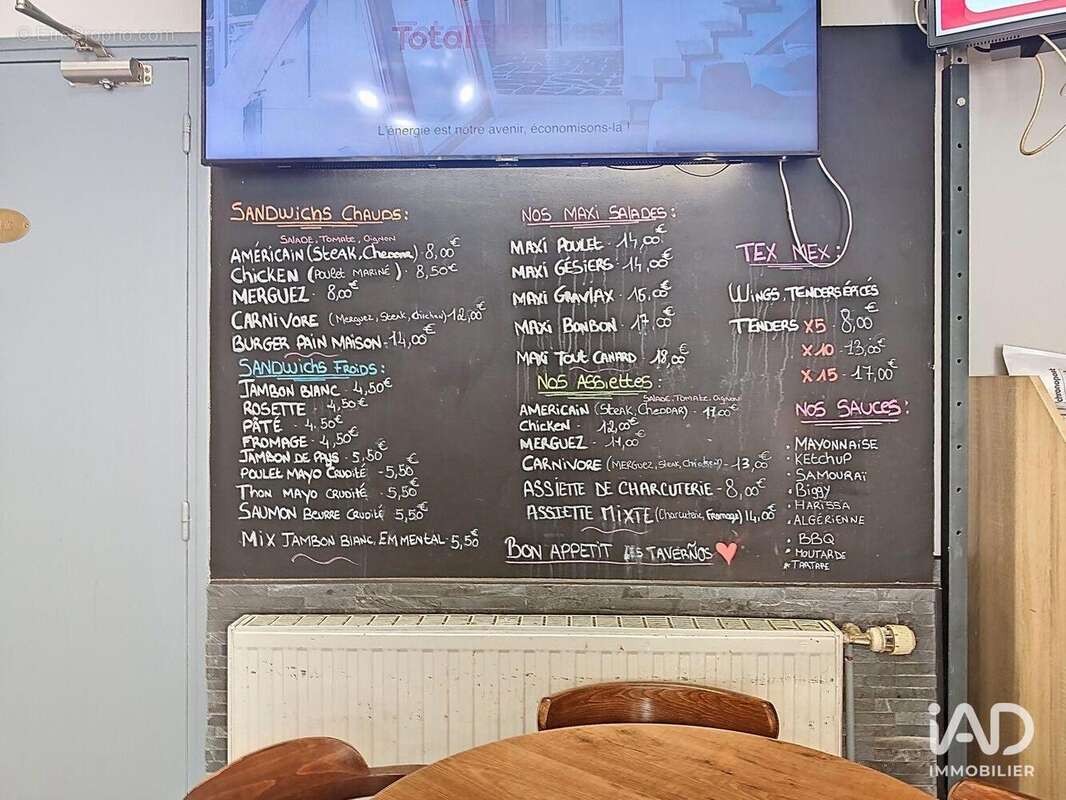 Total
L'énergie est notre avenir, économisons-la !
SANDWICHS CHAUDS:
SALADE, TOMATE, OIGNON
AMÉRICAIN (STEAK, CHEDDAR) - 8,00€
CHICKEN (POULET MARINÉ) - 8,50€
MERGUEZ - 8,00€
CARNIVORE (MERGUEZ, STEAK, CHICKEN) 12,00€
BURGER PAIN MAISON - 14,00€
SANDWICHS FROIDS:
JAMBON BLANC - 4,50€
ROSETTE - 4,50€
PÂTÉ - 4,50€
FROMAGE - 4,50€
JAMBON DE PAYS - 5,50€
POULET MAYO CRUDITÉ - 5,50€
THON MAYO CRUDITÉ - 5,50€
SAUMON BEURRE CRUDITÉ 5,50€
MIX JAMBON BLANC, EMMENTAL - 5,50€
NOS MAXI SALADES:
MAXI POULET - 14,00€
MAXI GÉSIERS - 14,00€
MAXI GRAVLAX - 16,00€
MAXI BONBON - 17,00€
MAXI TOUT CANARD - 18,00€
NOS ASSIETTES:
SALADE, TOMATE, OIGNON
AMERICAIN (STEAK, CHEDDAR) - 11,00€
CHICKEN - 12,00€
MERGUEZ - 11,00€
CARNIVORE (MERGUEZ, STEAK, CHICKEN) - 13,00€
ASSIETTE DE CHARCUTERIE - 8,00€
ASSIETTE MIXTE (Charcuterie, Fromage) 14,00€
BON APPETIT LES TAVERÑOS
TEX MEX:
WINGS, TENDERS ÉPICÉS
TENDERS X5 - 8,00€
X10 - 13,00€
X15 - 17,00€
NOS SAUCES:
. MAYONNAISE
. KETCHUP
. SAMOURAÏ
. BIGGY
. HARISSA
. ALGÉRIENNE
. BBQ
. MOUTARDE
* TARTARE
chronopost
iAD
IMMOBILIER